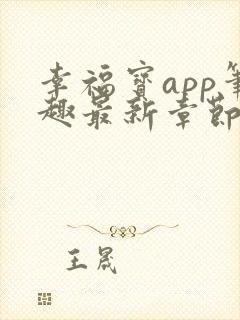 幸福宝app笔
趣最新章节
王晟